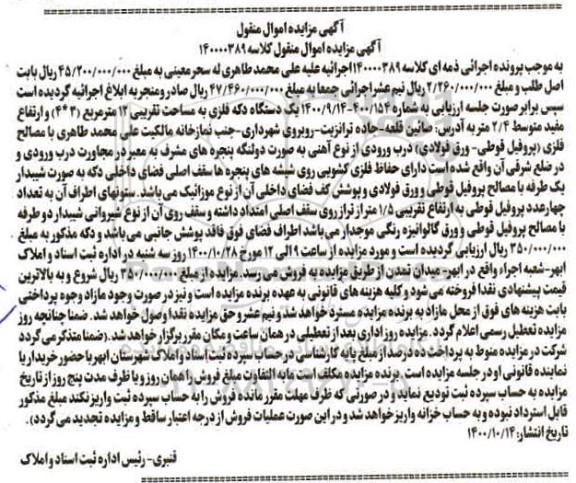 آگهی مزایده اموال منقول
آگهی مزایده اموال منقول کلاسه ۱۴۰۰۰۰۳۸۹
به موجب پرونده اجرائی ذمه ای کلاسه ۱۴۰۰۰۰۳۸۹ اجرائیه علیه علی محمد طاهری له سحر معینی به مبلغ ۴۵/۲۰۰/۰۰۰/۰۰۰ ریال بابت
اصل طلب و مبلغ ۲/۲۶۰/۰۰۰/۰۰۰ ریال نیم عشر اجرائی جمعا به مبلغ ۴۷/۴۶۰/۰۰۰/۰۰۰ ریال صادر و منجر به ابلاغ اجرائیه گردیده است
سپس برابر صورت جلسه ارزیابی به شماره ۴۰۰/۱۵۴-۱۴۰۰/۹/۱۴ یک دستگاه دکه فلزی به مساحت تقریبی ۱۲ مترمربع (۳*۴) و ارتفاع
مفید متوسط ۲/۴ متر به آدرس: صائین قلعه-جاده ترانزیت-روبروی شهرداری-جنب نمازخانه مالکیت علی محمد طاهری با مصالح
فلزی (پروفیل قوطی- ورق فولادی) درب ورودی از نوع آهنی به صورت دولنگه پنجره های مشرف به معبر در مجاورت درب ورودی و
در ضلع شرقی آن واقع شده است دارای حفاظ فلزی کشویی روی شیشه های پنجره ها سقف اصلی فضای داخلی دکه به صورت شیبدار
یک طرفه با مصالح پروفیل قوطی و ورق فولادی و پوشش کف فضای داخلی آن از نوع موزائیک می باشد. ستونهای اطراف آن به تعداد
چهار عدد پروفیل قوطی به ارتفاع تقریبی ۱/۵ متر از تراز روی سقف اصلی امتداد داشته و سقف روی آن از نوع شیروانی شیبدار دو طرفه
با مصالح پروفیل قوطی و ورق گالوانیزه رنگی موجدار می باشد اطراف فضای فوق فاقد پوشش جانبی می باشد و دکه مذکور به مبلغ
۳۵۰/۰۰۰/۰۰۰ ریال ارزیابی گردیده است و مورد مزایده از ساعت ۹ الی ۱۲ مورخ ۱۴۰۰/۱۰/۲۸ روز سه شنبه در اداره ثبت اسناد و املاک
ابهر-شعبه اجراء واقع در ابهر- میدان تمدن از طریق مزایده به فروش می رسد. مزایده از مبلغ ۳۵۰/۰۰۰/۰۰۰ ریال شروع و به بالاترین
قیمت پیشنهادی نقدا فروخته می شود و کلیه هزینه های قانونی به عهده برنده مزایده است و نیز در صورت وجود مازاد وجوه پرداختی
بابت هزینه های فوق از محل مازاد به برنده مزایده مسترد خواهد شد و نیم عشر و حق مزایده نقدا وصول خواهد شد. ضمنا چنانچه روز
مزایده تعطیل رسمی اعلام گردد. مزایده روز اداری بعد از تعطیلی در همان ساعت و مکان مقرر برگزار خواهد شد. (ضمنا متذکر می گردد
شرکت در مزایده منوط به پرداخت ده درصد از مبلغ پایه کارشناسی در حساب سپرده ثبت اسناد و املاک شهرستان ابهر با حضور خریدار یا
نماینده قانونی او در جلسه مزایده است. برنده مزایده مکلف است مابه التفاوت مبلغ فروش را همان روز و یا ظرف مدت پنج روز از تاریخ
مزایده به حساب سپرده ثبت تودیع نماید و در صورتی که ظرف مهلت مقرر مانده فروش را به حساب سپرده ثبت واریز نکند مبلغ مذکور
قابل استرداد نبوده و به حساب خزانه واریز خواهد شد و در این صورت عملیات فروش از درجه اعتبار ساقط و مزایده تجدید می گردد).
تاریخ انتشار: ۱۴۰۰/۱۰/۱۴
قنبری- رئیس اداره ثبت اسناد و املاک